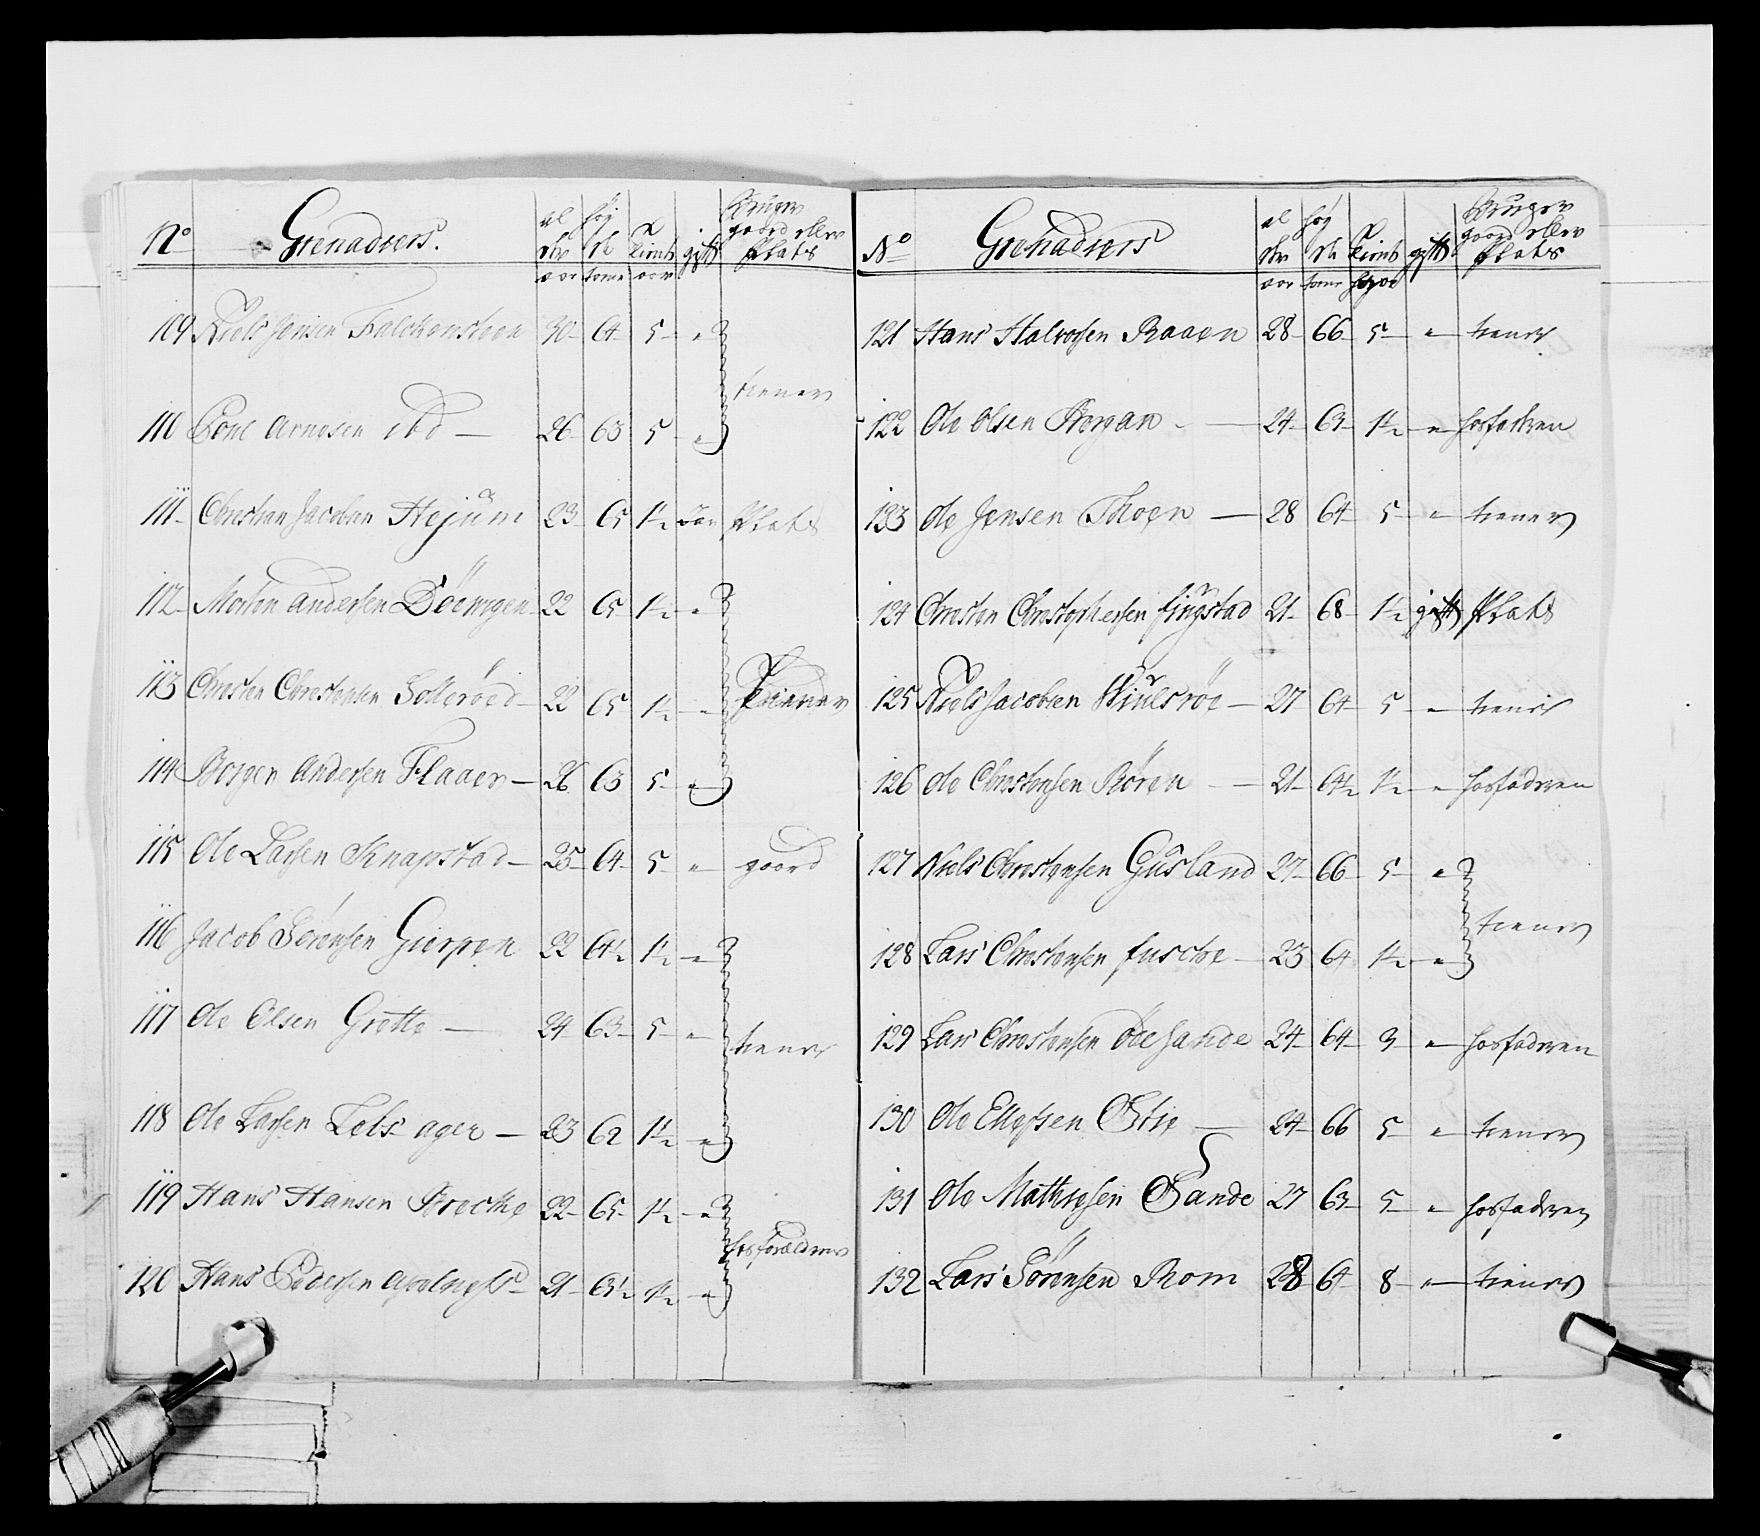 No Grenadeers. al der høy de tient gift Bruger gaard eller Plads
aar tome aar
109 Niels Jensen Falckensteen 30 64 5 "
tiener
110 Poul Arnesen ibd — 26 63 5 "
111 Christian Jacobsen Hejum 23 65 1½ Plads
112 Morten Andersen Döewigen 22 65 1½ "
113 Christen Christensen Solleröed 22 65 1½ " tiener
114 Borger Andersen Flaaer — 26 63 5 "
115 Ole Larsen Knapstad — 25 64 5 " gaard
116 Jacob Sörensen Gierpen 22 64½ 1½ "
117 Ole Olsen Grette — 24 63 5 " tiener
118 Ole Larsen Lebs ager — 23 62 1½ "
119 Hans Hansen Brecke 22 65 1½ "
hos forældrene
120 Hans Pedersen 21 63½ 1½ "
No Grenadeers al der høy de tient gift Bruger gaard eller Plads
aar tome
121 Hans Halvorsen Braaen 28 66 5 " tiener
122 Ole Olsen Bergan — 24 63 1½ " hosfadren
123 Ole Jensen Moen — 28 64 5 " tiener
124 Christen Christophersen Liugstad 21 68 1½ gift Plads
125 Niels Jacobsen Hiulsröe — 27 64 5 " tiener
126 Ole Christensen Bören — 21 64½ 1½ " hosfadren
127 Niels Christensen Gusland 27 66 5 "
tiener
128 Lars Christensen fuscke — 23 64 1½ "
129 Lars Christensen Öde Sande 24 64 3 " hosfadren
130 Ole Ellefsen Östie — 24 66 5 " tiener
131 Ole Mathiesen Sande 27 63 5 " hosfadren
132 Lars Sörensen Rom 28 64 8 " tiener